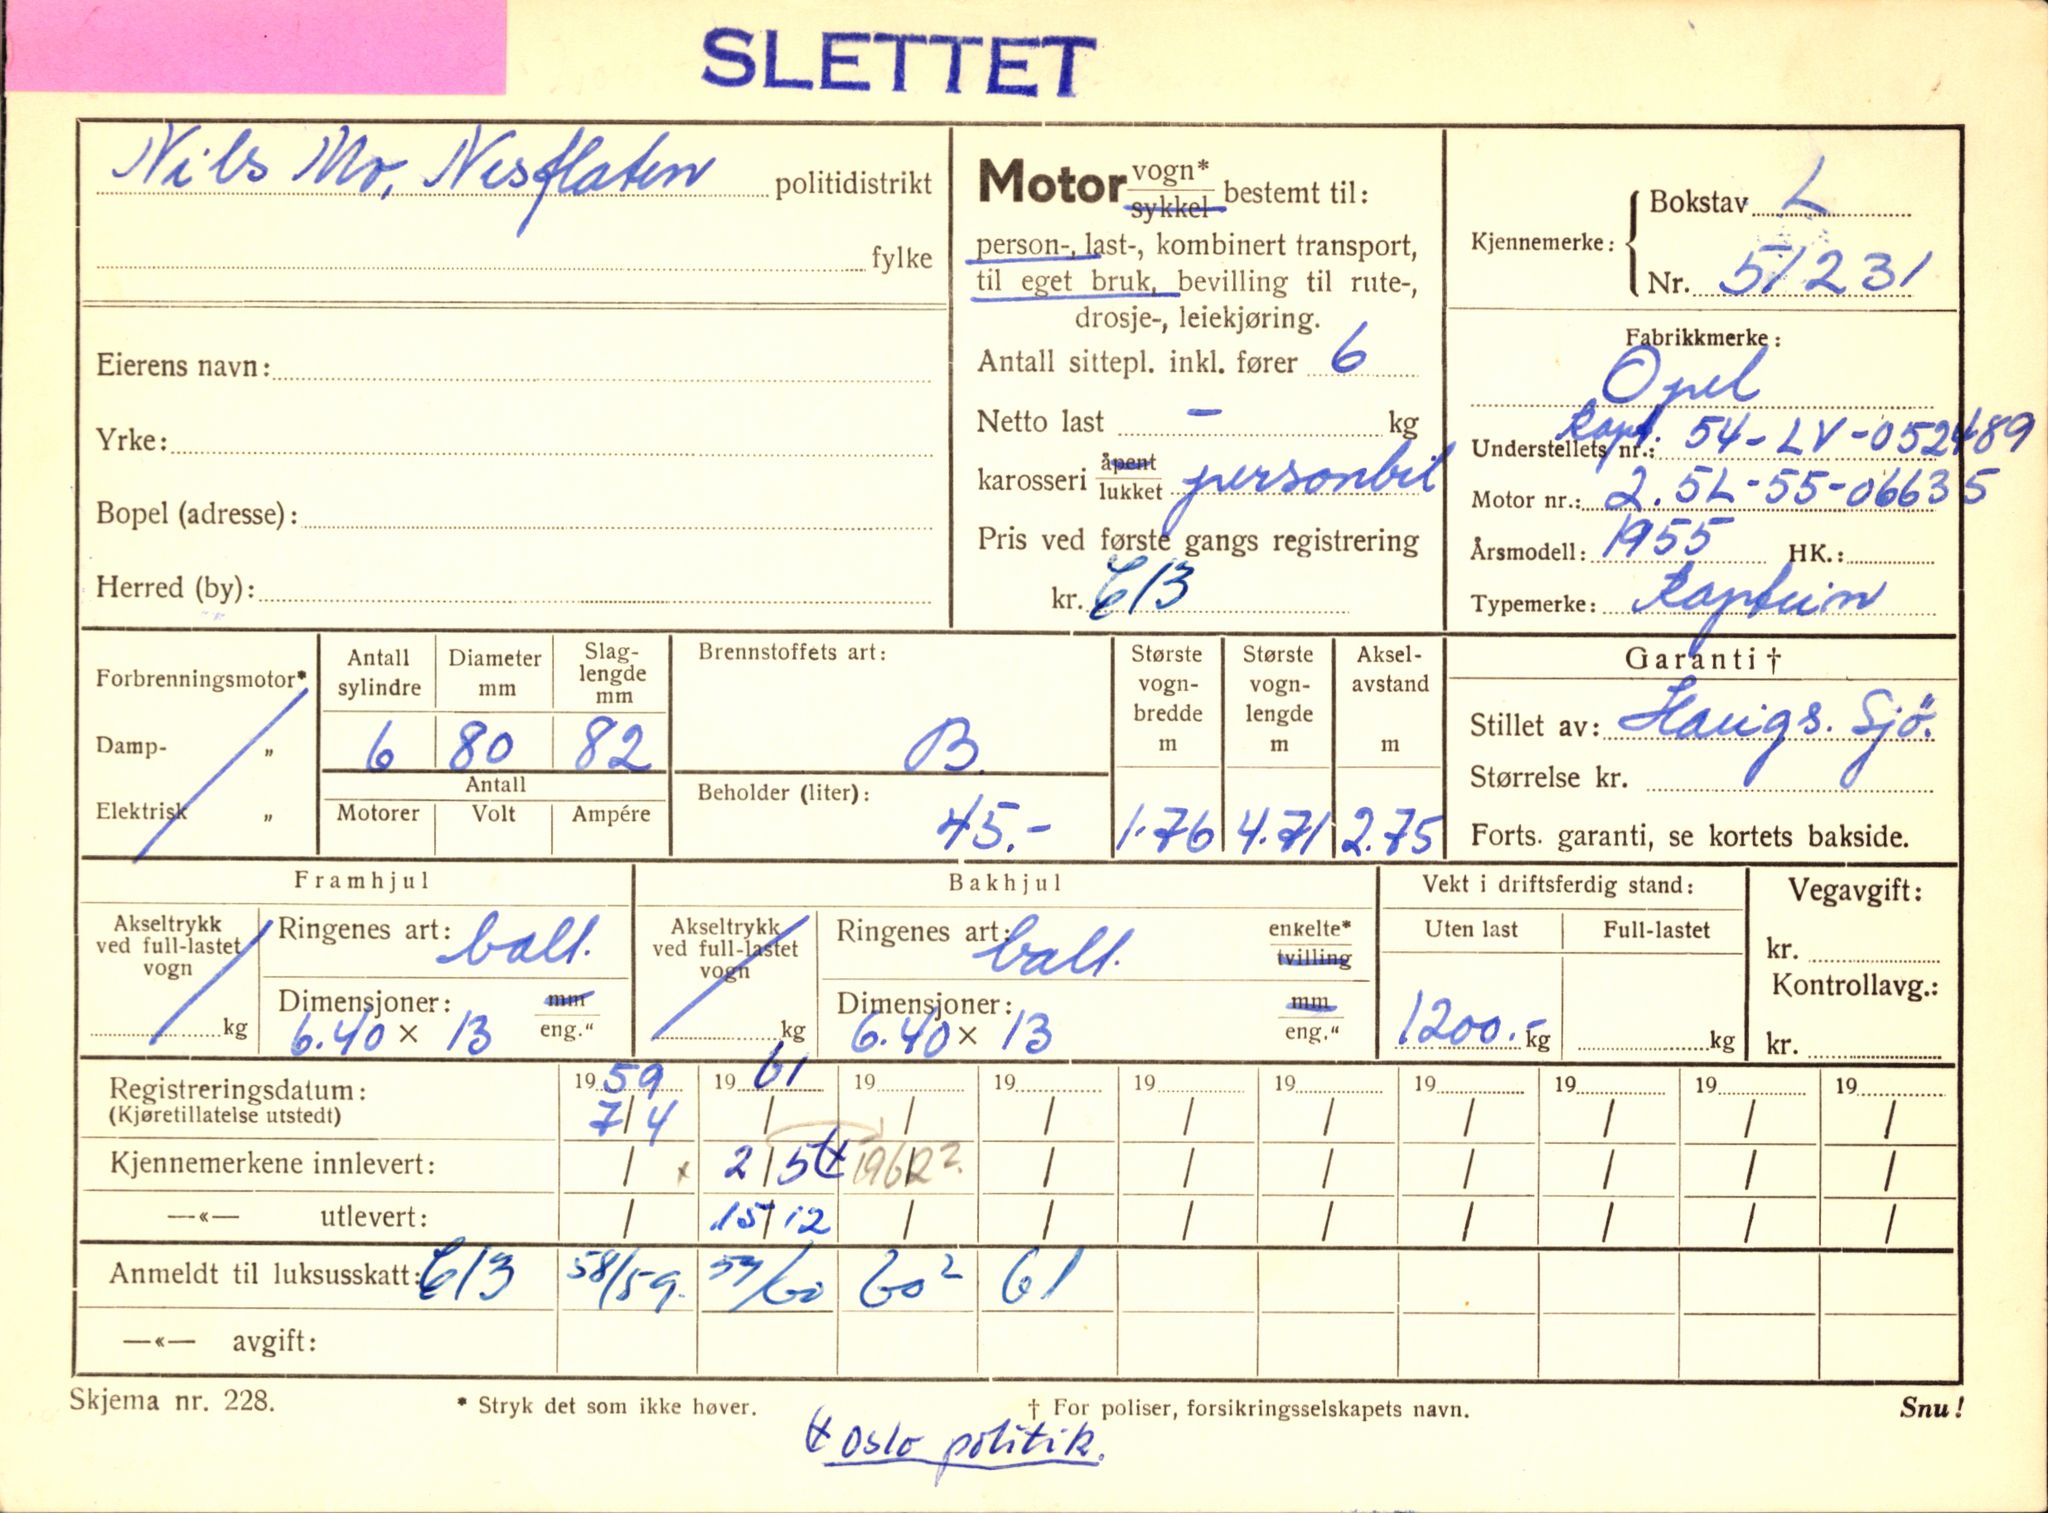 SLETTET
Nils Mo, Nesflaten politidistrikt
fylke
Eierens navn:
Yrke:
Bopel (adresse):
Herred (by):
Motor vogn* sykkel bestemt til:
person-, last-, kombinert transport,
til eget bruk, bevilling til rute-,
drosje-, leiekjøring.
Antall sittepl. inkl. fører 6
Netto last – kg
karosseri åpent lukket personbil
Pris ved første gangs registrering
kr. 613
Kjennemerke: Bokstav L
Nr. 51231
Fabrikkmerke:
Opel
Kapt.
Understellets nr.: 54-LV-052489
Motor nr.: 2.5L-55-06635
Årsmodell: 1955 HK.:
Typemerke: Kaptein
Forbrenningsmotor*
Damp- „
Elektrisk „
Antall sylindre Diameter mm Slag-lengde mm
6 80 82
Antall
Motorer Volt Ampére
Brennstoffets art:
B.
Beholder (liter):
45.-
Største vogn-bredde m
1.76
Største vogn-lengde m
4.71
Aksel-avstand m
2.75
Garanti †
Stillet av: Haugs. Sjö.
Størrelse kr.
Forts. garanti, se kortets bakside.
Framhjul
Akseltrykk ved full-lastet vogn
kg
Ringenes art: ball.
Dimensjoner: mm eng."
6.40 × 13
Bakhjul
Akseltrykk ved full-lastet vogn
kg
Ringenes art: ball. enkelte* tvilling
Dimensjoner: mm eng."
6.40 × 13
Vekt i driftsferdig stand:
Uten last Full-lastet
1200.- kg kg
Vegavgift:
kr.
Kontrollavg.:
kr.
Registreringsdatum: 19 59 19 61 19 19 19 19 19 19 19 19
(Kjøretillatelse utstedt) 7/4 / / / / / / / / /
Kjennemerkene innlevert: / x 2/5 1962? / / / / / / /
—«— utlevert: / 15/12 / / / / / / / /
Anmeldt til luksusskatt: 613 58/59. 59/60 60² 61
—«— avgift:
Skjema nr. 228. * Stryk det som ikke høver. † For poliser, forsikringsselskapets navn. Snu!
Oslo politik.